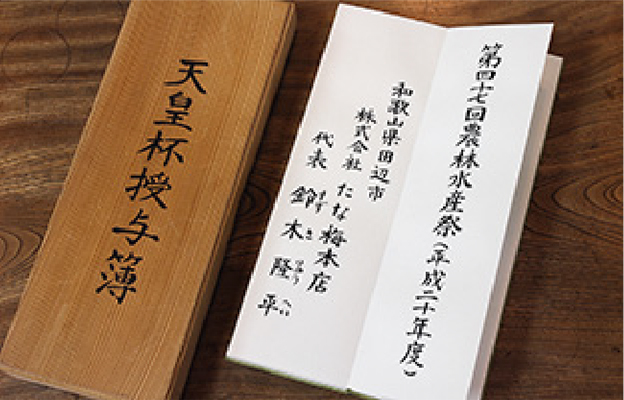 天皇杯授与簿
第四十七回農林水産祭(平成二十年度)
和歌山県田辺市
株式会社 たな梅本店
代表 鈴木隆平
き りゅう へい